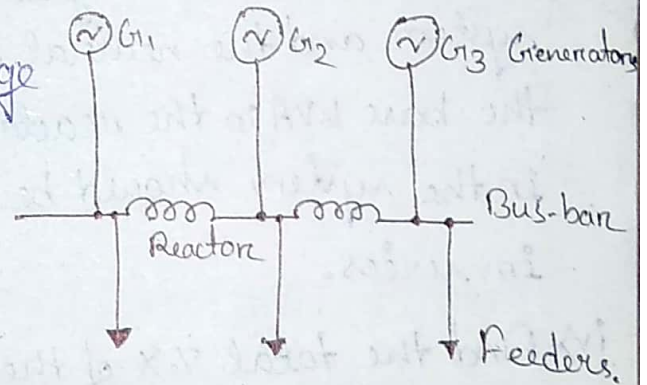 G1
G2
G3 Generators
ge
Bus-bar
Reactor
Feeders.